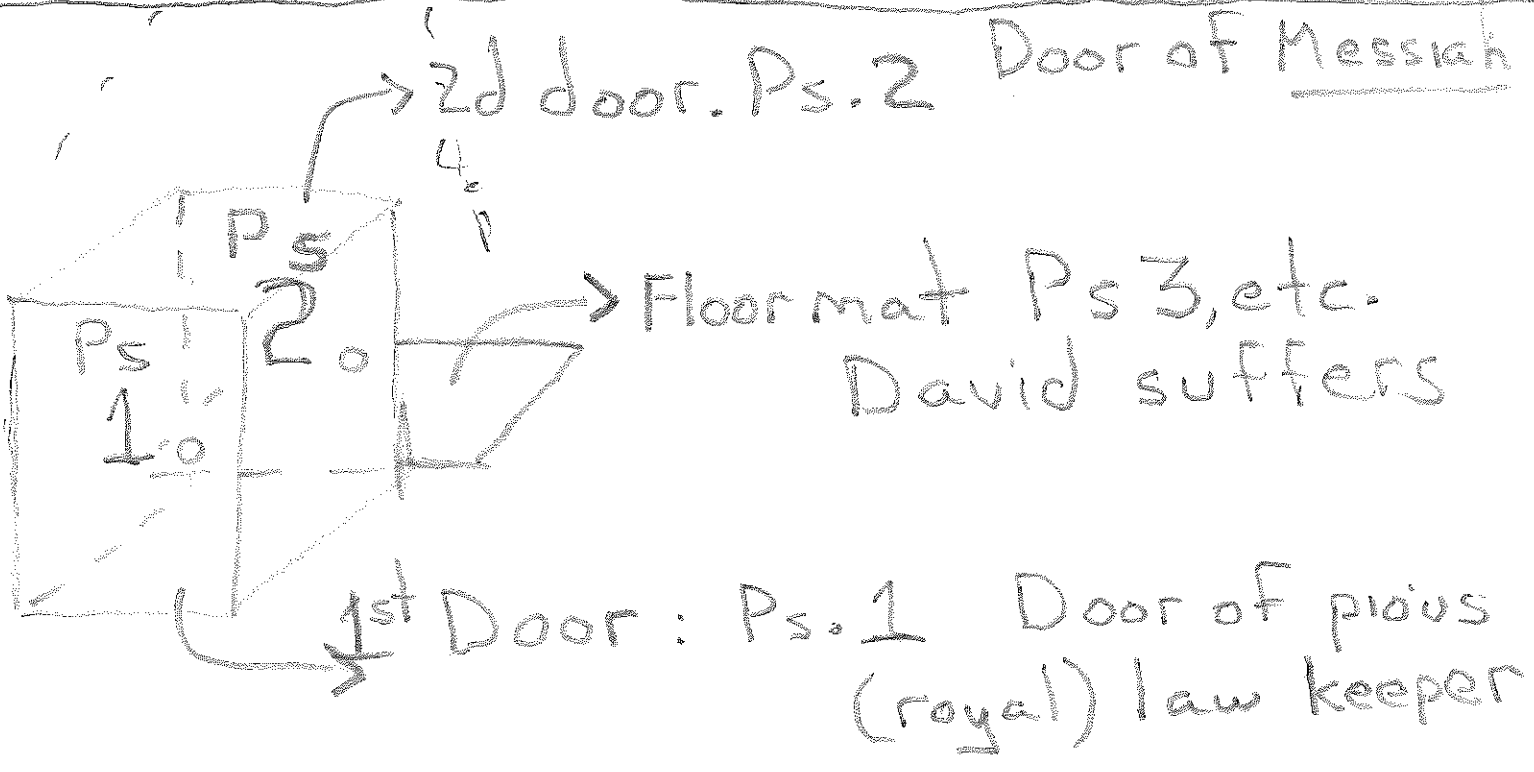 2d door. Ps. 2 Door of Messiah
Ps
2
Ps
1
Floor mat Ps 3, etc.
David suffers
1st Door : Ps. 1 Door of pious
(royal) law keeper